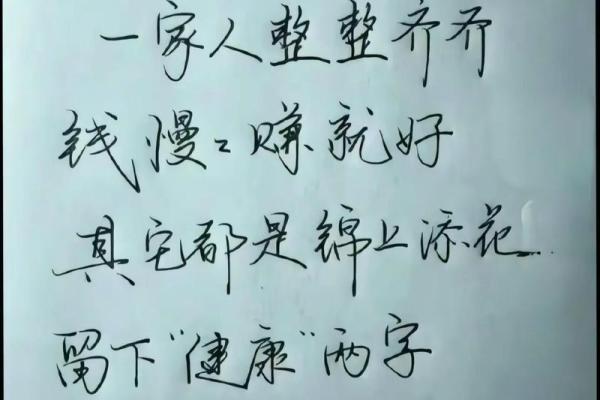 一家人整整齐齐
钱慢々赚就好
其它都是锦上添花
留下“健康”两字